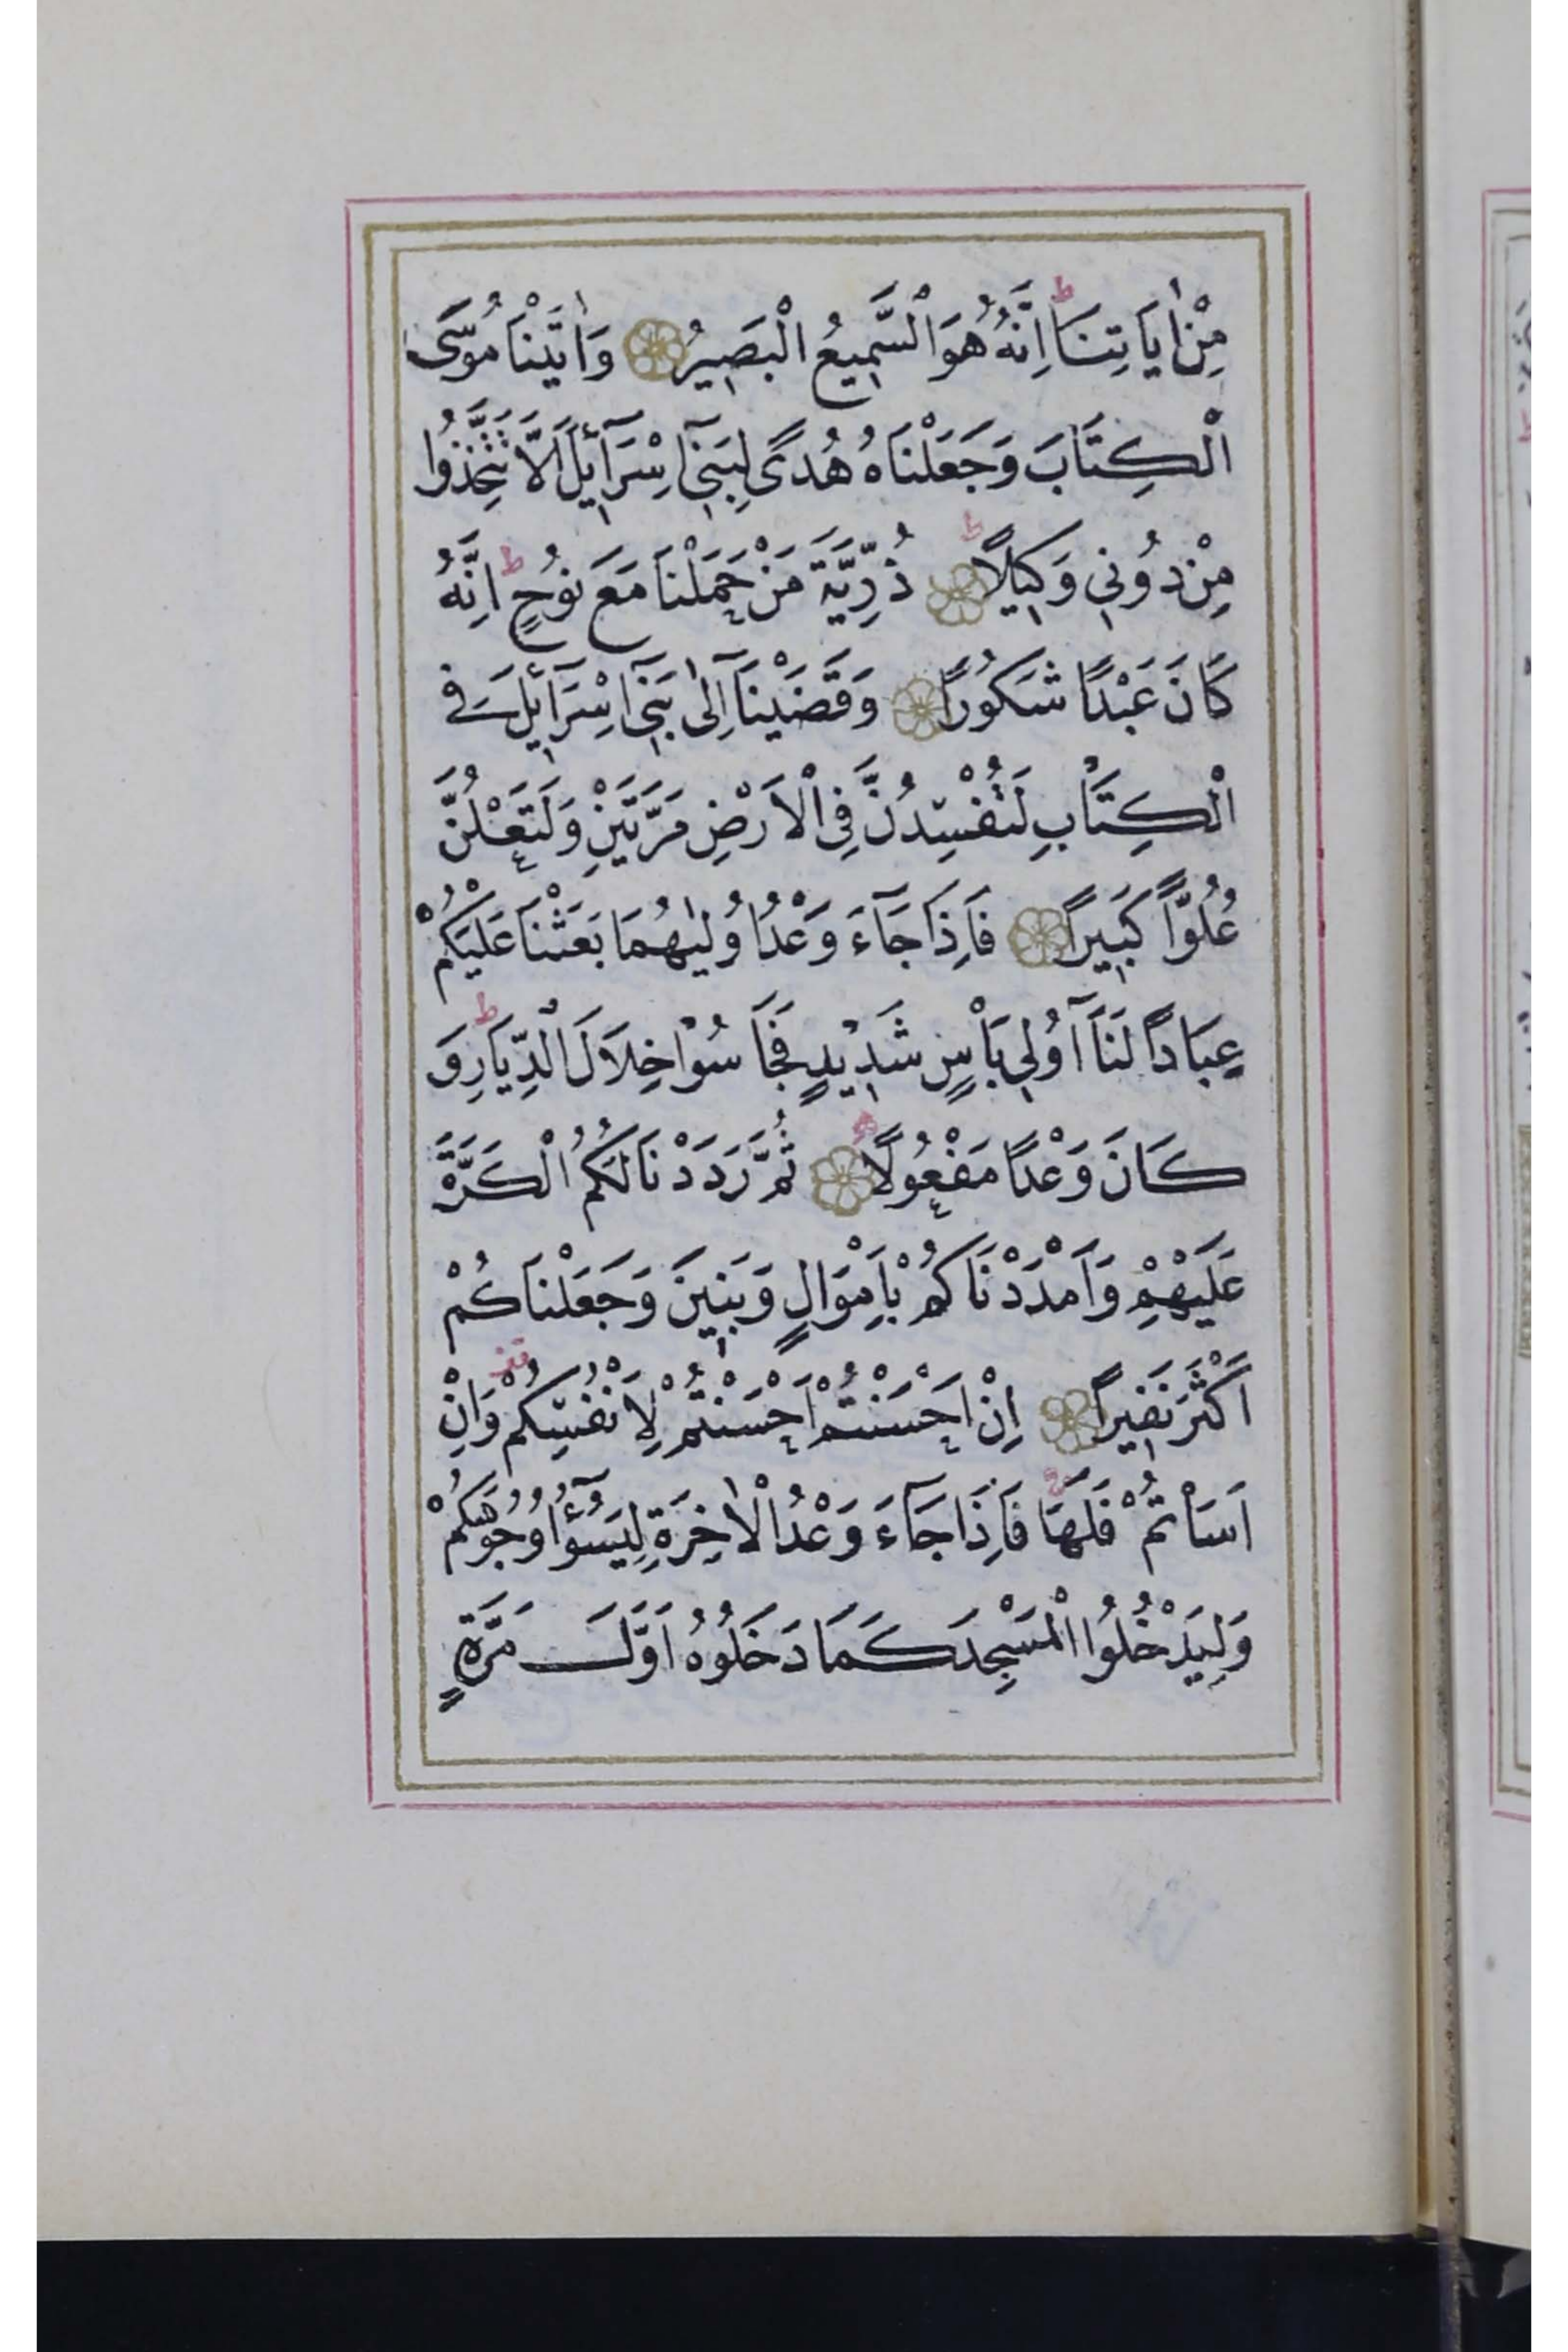 مِنْ اٰيَاتِنَاۜ اِنَّهُ هُوَ السَّمِيعُ الْبَصِيرُ وَاٰتَيْنَا مُوسَى
الْكِتَابَ وَجَعَلْنَاهُ هُدًى لِبَنِيٓ اِسْرَٓائِلَ اَلَّا تَتَّخِذُوا
مِنْ دُونِي وَكِيلًا ط ذُرِّيَّةَ مَنْ حَمَلْنَا مَعَ نُوحٍ ط اِنَّهُ
كَانَ عَبْدًا شَكُورًا وَقَضَيْنَٓا اِلٰى بَنِيٓ اِسْرَٓائِلَ فِي
الْكِتَابِ لَتُفْسِدُنَّ فِي الْاَرْضِ مَرَّتَيْنِ وَلَتَعْلُنَّ
عُلُوًّا كَبِيرًا فَاِذَا جَٓاءَ وَعْدُ اُولٰيهُمَا بَعَثْنَا عَلَيْكُمْ
عِبَادًا لَنَٓا اُولِي بَاْسٍ شَدِيدٍ فَجَاسُوا خِلَالَ الدِّيَارِ ط وَ
كَانَ وَعْدًا مَفْعُولًا ثُمَّ رَدَدْنَا لَكُمُ الْكَرَّةَ
عَلَيْهِمْ وَاَمْدَدْنَاكُمْ بِاَمْوَالٍ وَبَنِينَ وَجَعَلْنَاكُمْ
اَكْثَرَ نَفِيرًا اِنْ اَحْسَنْتُمْ اَحْسَنْتُمْ لِاَنْفُسِكُمْ وَاِنْ
اَسَاْتُمْ فَلَهَا فَاِذَا جَٓاءَ وَعْدُ الْاٰخِرَةِ لِيَسُٓوؤُا وُجُوهَكُمْ
وَلِيَدْخُلُوا الْمَسْجِدَ كَمَا دَخَلُوهُ اَوَّلَ مَرَّةٍ